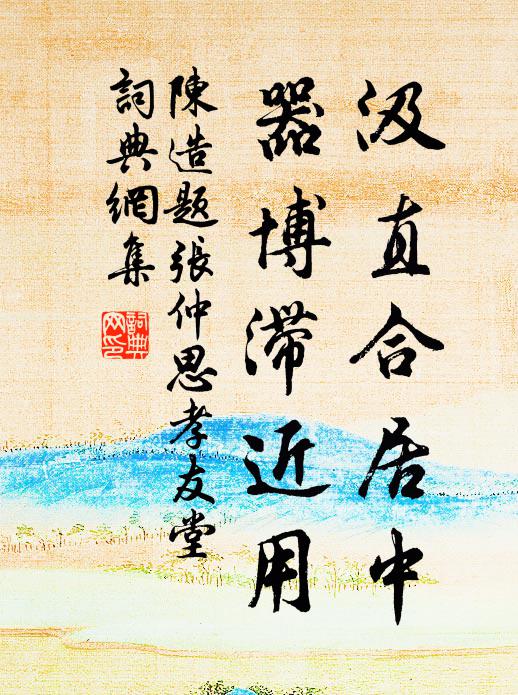 汲直合居中
器博滞近用
陳造題張仲思孝友堂
詞典網集
詞典網印